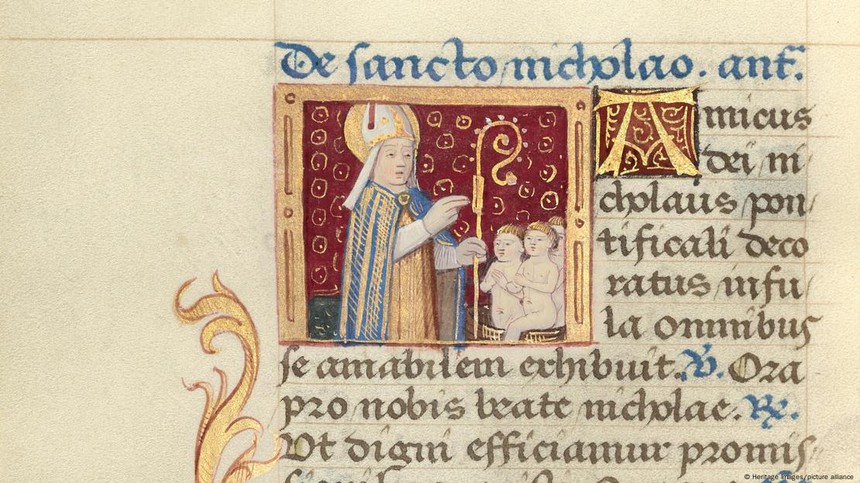 De sancto nicholao. ant.
Amicus
dei ni
cholaus pon
tificali deco
ratus infu
la omnibus
se amabilem exhibuit. V. Ora
pro nobis beate nicholae. Re.
Vt digni efficiamur promis
© Heritage Images/picture alliance